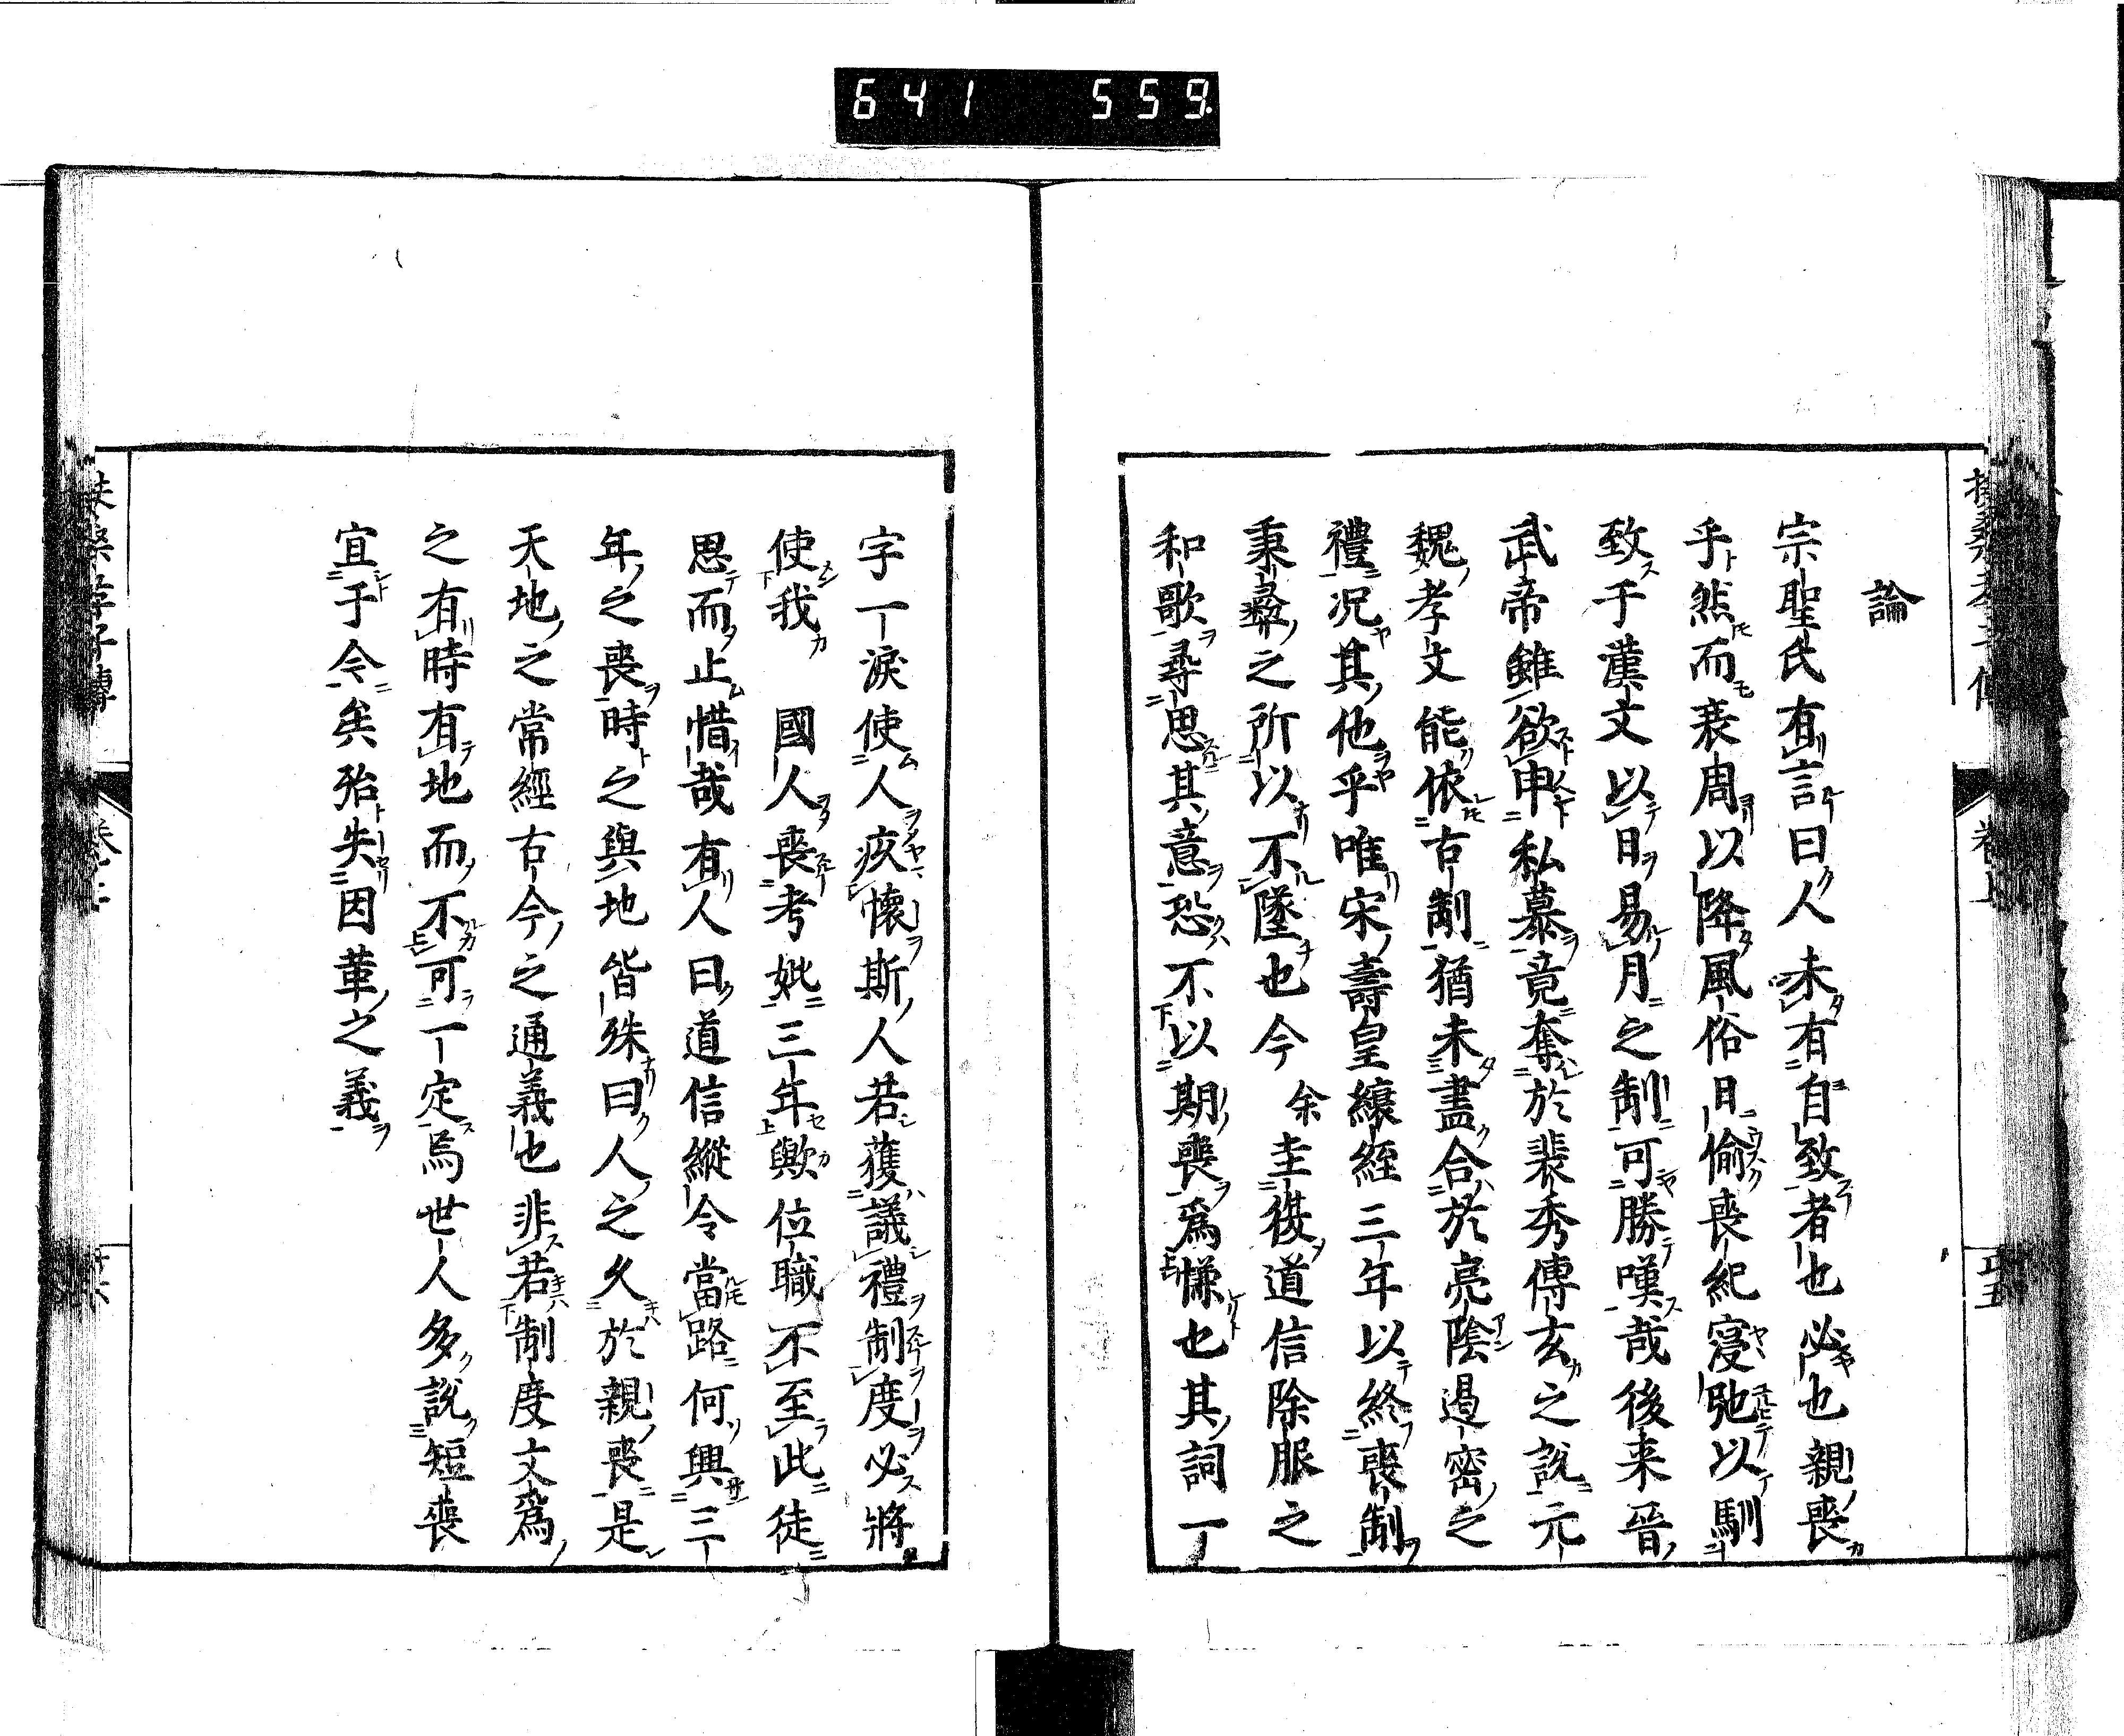 641 559
論
宗聖氏有言曰人未有自致者也必也親喪
乎然而衰周以降風俗日偷喪紀寢弛以馴
致于漢文以日易月之制可勝嘆哉後来晉
武帝雖欲申私慕竟奪於裴秀傅玄之説元
魏孝文能依古制猶未盡合於亮陰遏密之
禮况其他乎唯宋壽皇縗絰三年以終喪制
秉彜之所以不墜也今余圭復道信除服之
和歌尋思其意恐不以期喪爲慊也其詞一
字一涙使人疚懷斯人若獲議禮制度必將
使我 國人喪考妣三年歟位職不至此徒
思而止惜哉有人曰道信縱令當路何興三
年之喪時之與地皆殊曰人之久於親喪是
天地之常經古今之通義也非若制度文爲
之有時有地而不可一定焉世人多説短喪
宜于今矣殆失因革之義
扶桑孝子傳